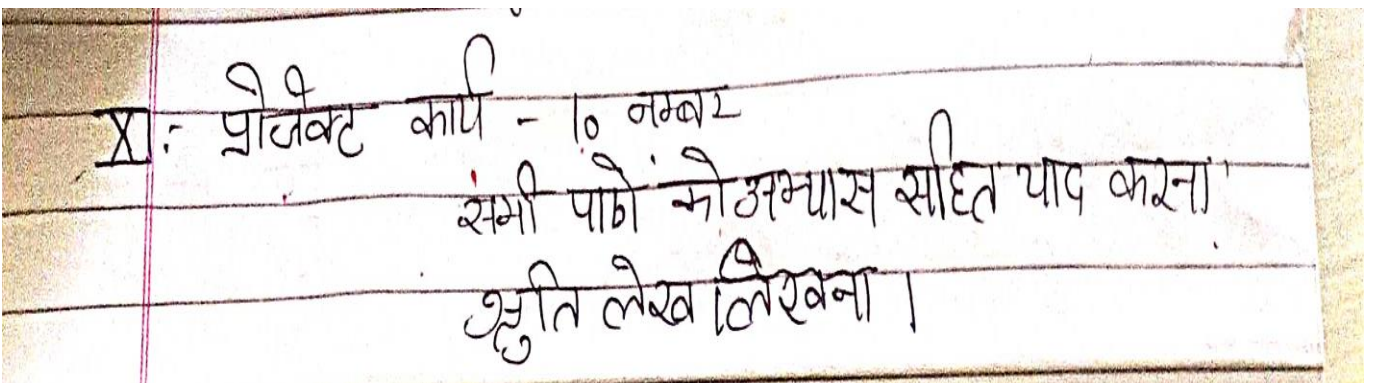 XI:- प्रोजेक्ट कार्य - 10 नम्बर
सभी पाठों को अभ्यास सहित याद करना
श्रुति लेख लिखना।